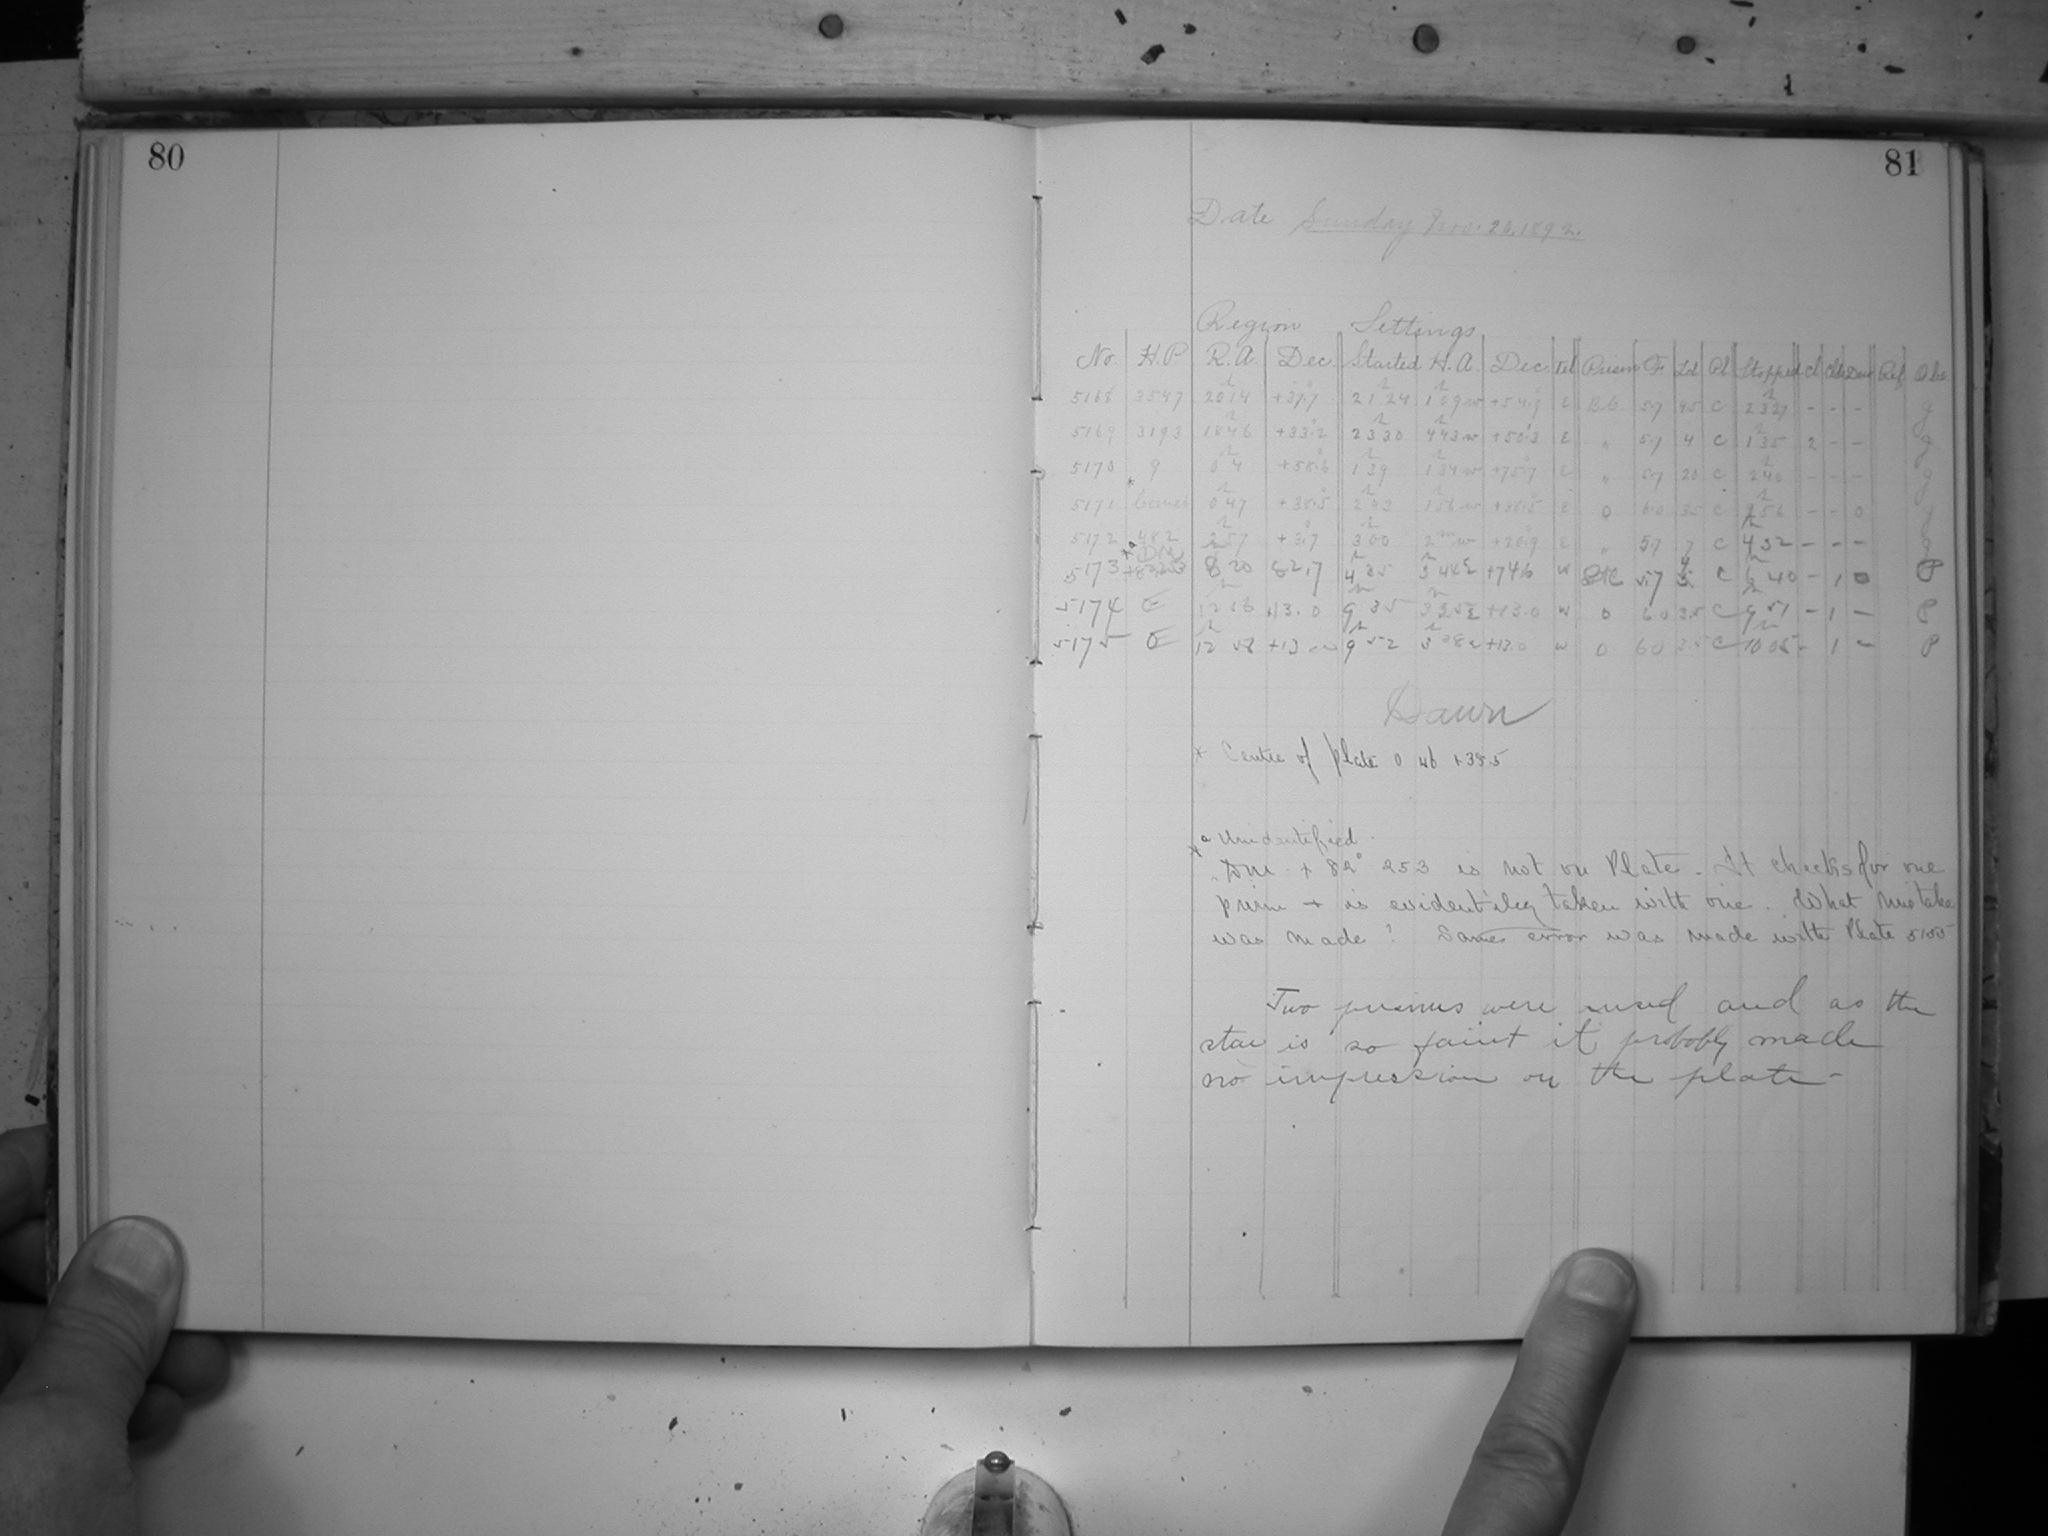 80
81
Date Sunday Nov. 20, 1892.
Region Settings
No. H.P R.A. Dec. Started H.A. Dec. Tel Prism F. Ld Pl Stopped Cl Clk Dew Ref Obs
5168 3547 20 14 +37.7 21 24 1 09 w +54.9 E B.C. 57 45 C 23 27 - - - g
5169 3193 18 46 +33.2 23 30 4 43 w +50.3 E " 57 4 C 1 35 2 - - g
5170 9 0 4 +58.6 1 39 1 34 w +75.7 E " 57 20 C 2 40 - - - g
5171 *Comet 0 47 +38.5 2 43 1 56 w +38.5 E 0 60 35 C 2 56 - - 0 g
5172 482 2 57 +3.7 3 00 w +20.9 E " 57 7 C 4 32 - - - g
*a DM
5173 +82°253 8 20 82.7 4 35 3 46 E +74.6 w 57 C 6 40 - 1 0 P
5174 E 13.0 9 35 3 25 E +13.0 w 0 60 35 C 9 51 - 1 - P
5175 E 12 58 +13.0 9 52 3 08 E +13.0 w 0 60 35 C 10 05 - 1 - P
Dawn
* Centre of plate 0 46 +38.5
*a Unidentified.
DM + 82° 253 is not on Plate. It checks for one
prism + is evidently taken with one. What mistake
was made? Same error was made with Plate 5155
Two prisms were used and as the
star is so faint it probably made
no impression on the plate-